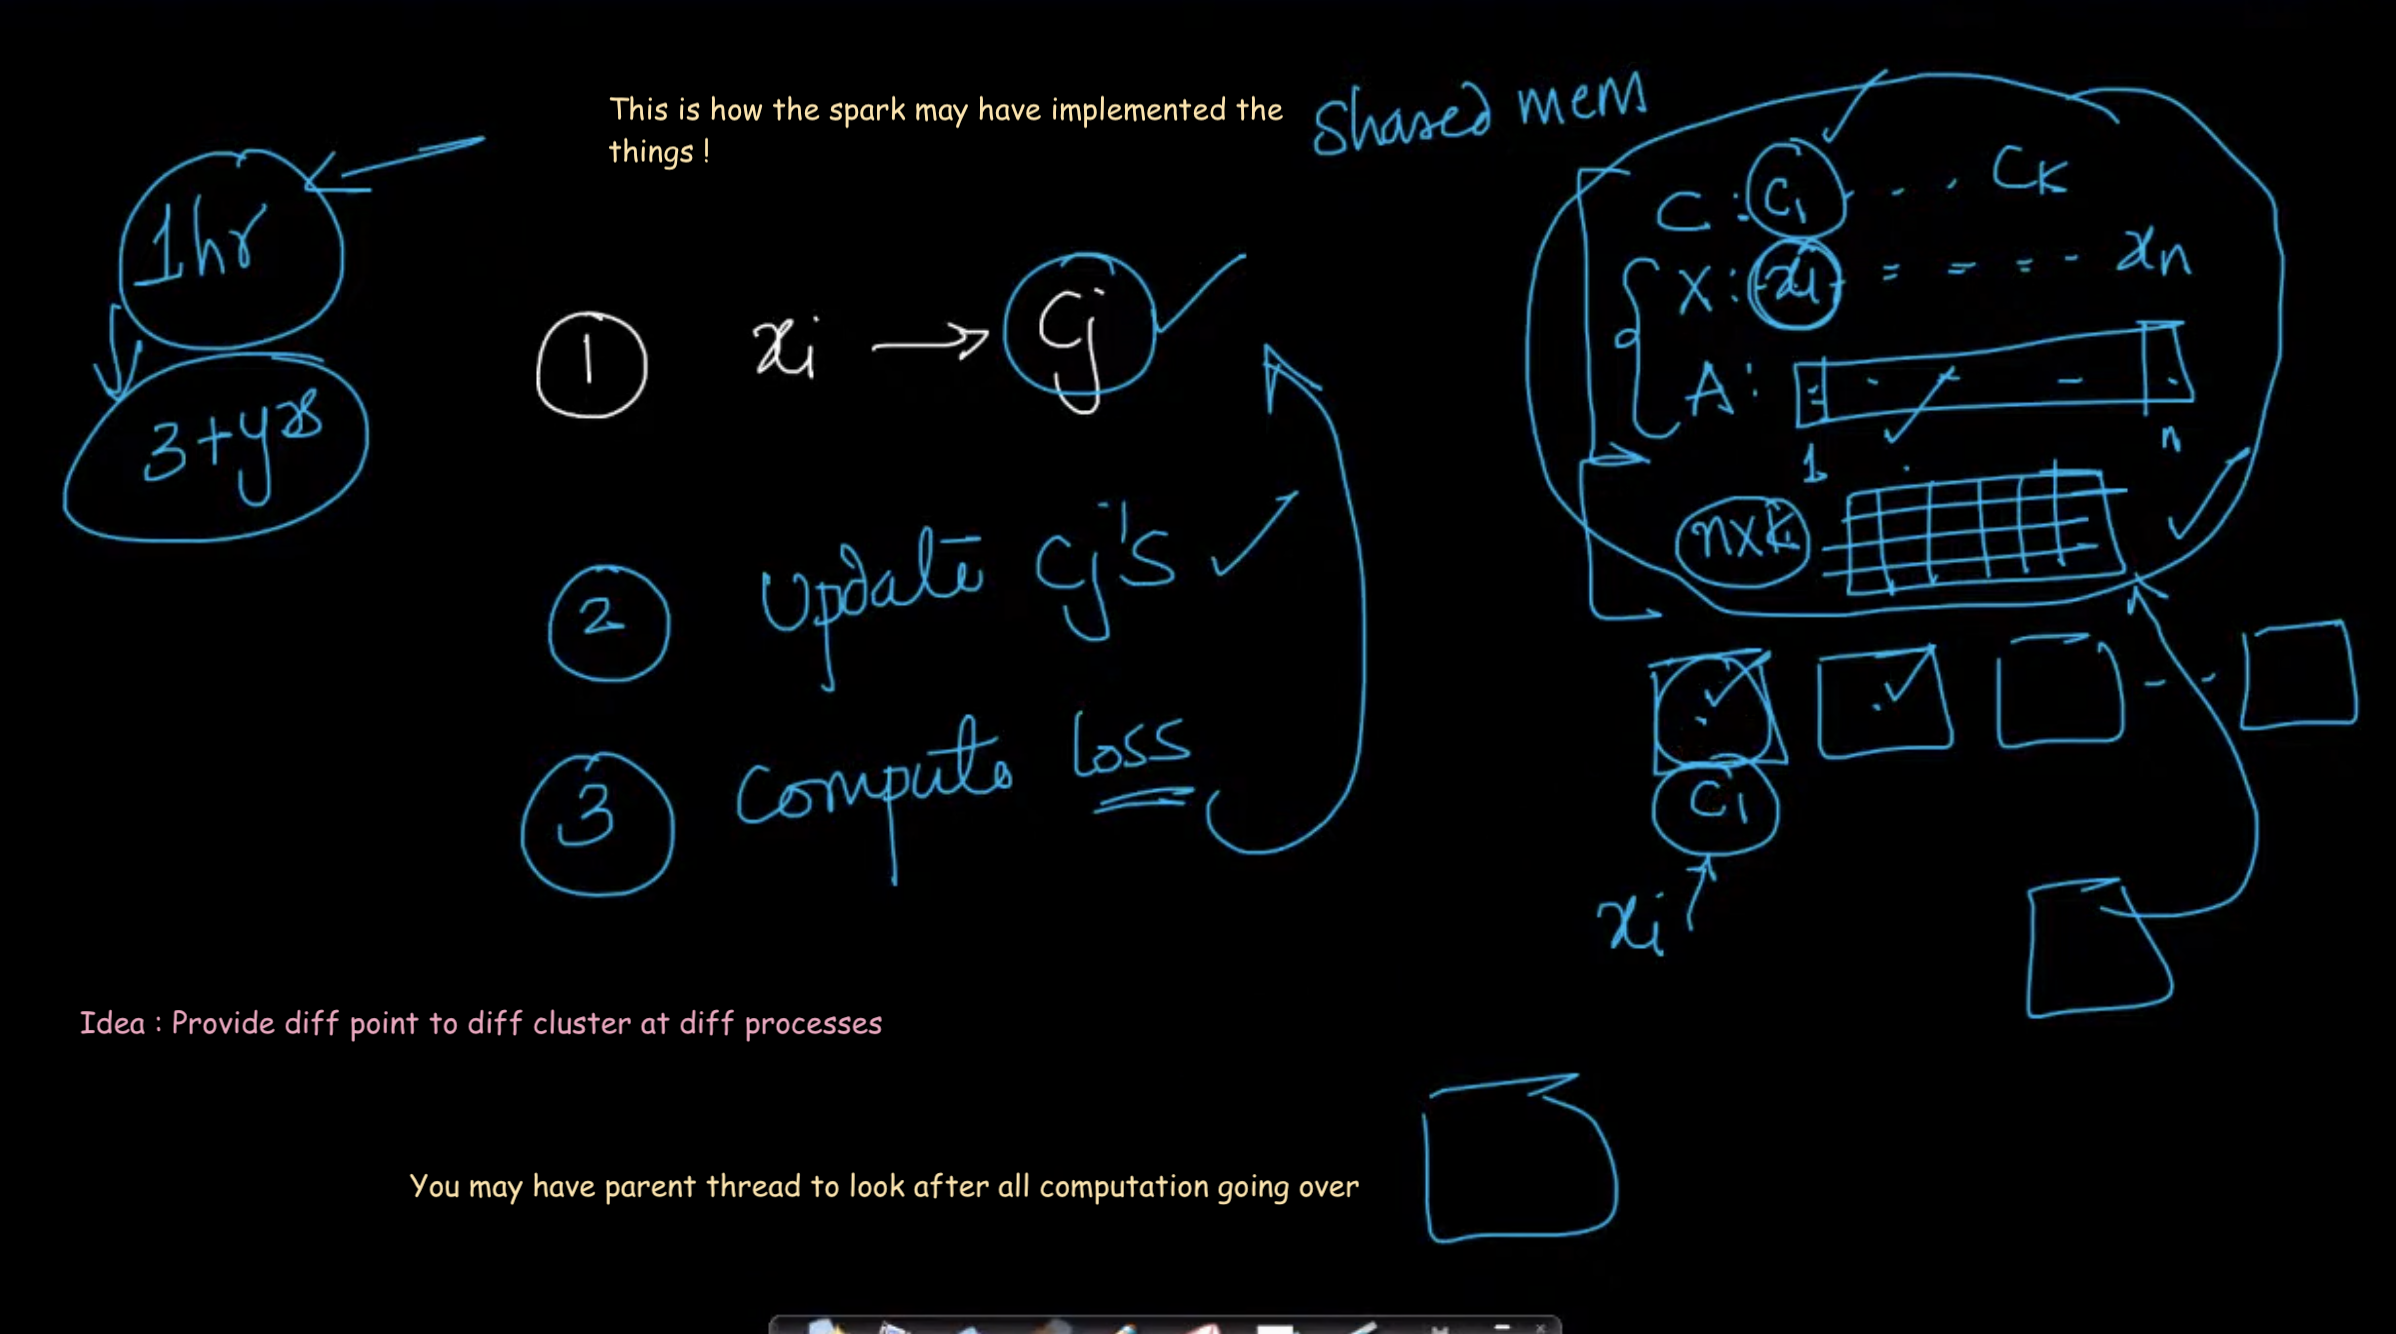 This is how the spark may have implemented the
things !
1hr
3+yrs
1 xi → Cj
2 Update Cj's
3 Compute loss
Shared mem
C : C1 . . . CK
X : x1 = - = - xn
A :
1 n
nxk
C1
xi
Idea : Provide diff point to diff cluster at diff processes
You may have parent thread to look after all computation going over